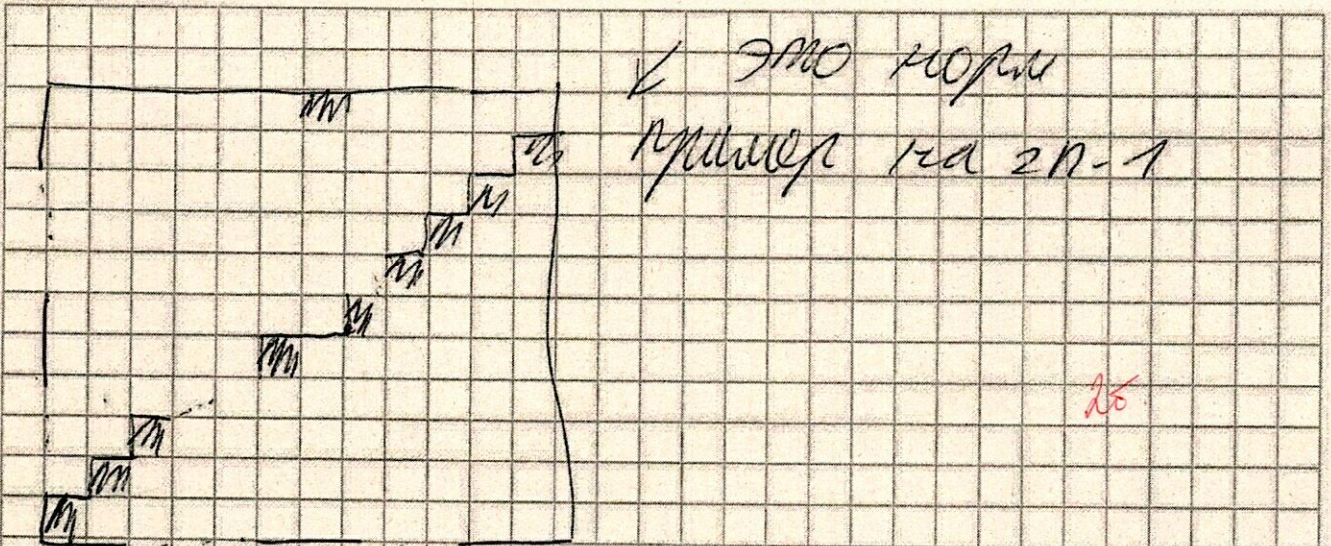 это норм
пример на 2n-1
2б